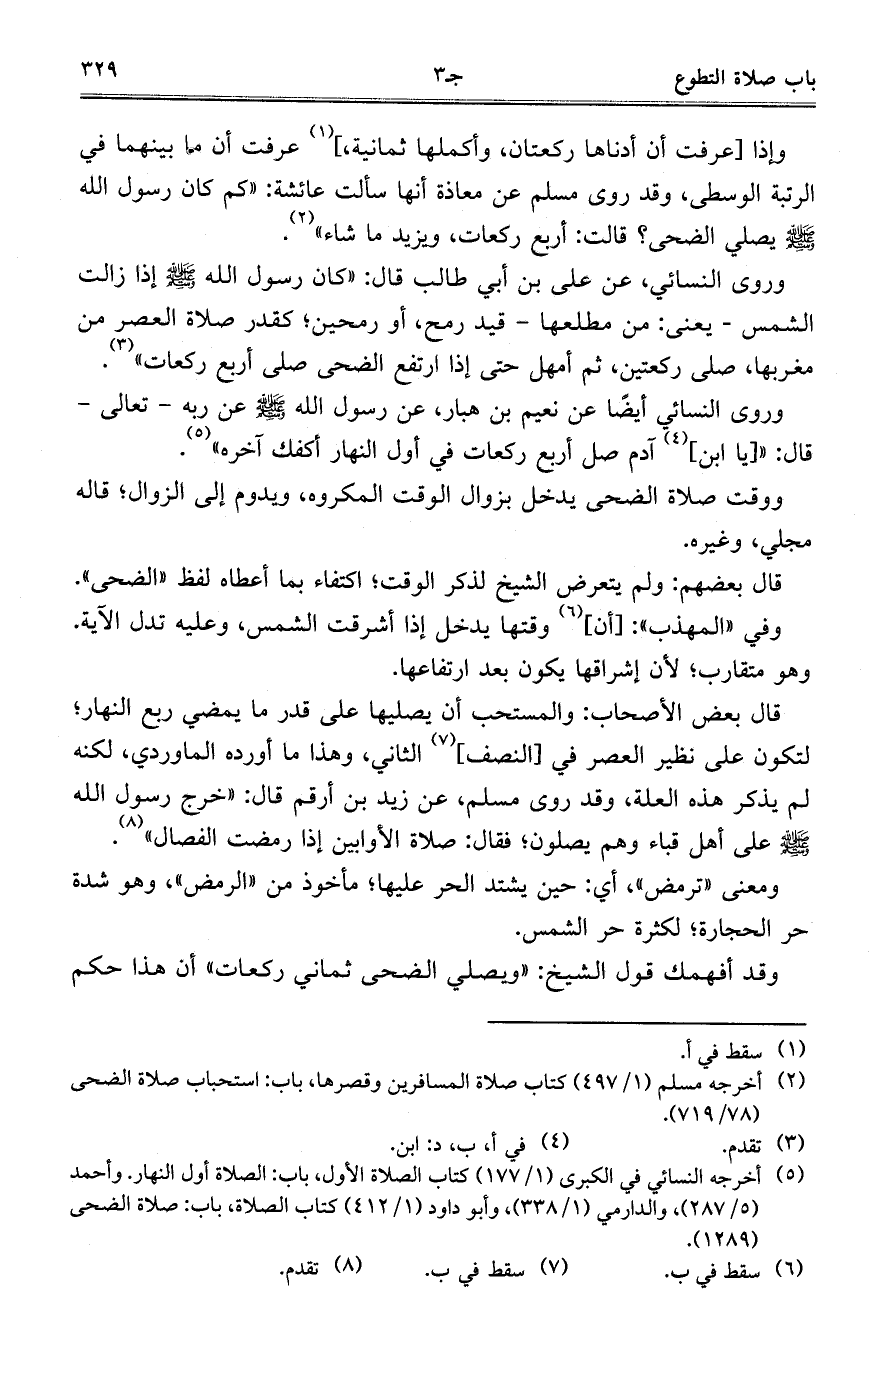 باب صلاة التطوع جـ٣ ٣٢٩
وإذا [عرفت أن أدناها ركعتان، وأكملها ثمانية،](١) عرفت أن ما بينهما في
الرتبة الوسطى، وقد روى مسلم عن معاذة أنها سألت عائشة: «كم كان رسول الله
ﷺ يصلي الضحى؟ قالت: أربع ركعات، ويزيد ما شاء»(٢).
وروى النسائي، عن على بن أبي طالب قال: «كان رسول الله ﷺ إذا زالت
الشمس - يعنى: من مطلعها - قيد رمح، أو رمحين؛ كقدر صلاة العصر من
مغربها، صلى ركعتين، ثم أمهل حتى إذا ارتفع الضحى صلى أربع ركعات»(٣).
وروى النسائي أيضًا عن نعيم بن هبار، عن رسول الله ﷺ عن ربه - تعالى -
قال: «[يا ابن](٤) آدم صل أربع ركعات في أول النهار أكفك آخره»(٥).
ووقت صلاة الضحى يدخل بزوال الوقت المكروه، ويدوم إلى الزوال؛ قاله
مجلي، وغيره.
قال بعضهم: ولم يتعرض الشيخ لذكر الوقت؛ اكتفاء بما أعطاه لفظ «الضحى».
وفي «المهذب»: [أن](٦) وقتها يدخل إذا أشرقت الشمس، وعليه تدل الآية.
وهو متقارب؛ لأن إشراقها يكون بعد ارتفاعها.
قال بعض الأصحاب: والمستحب أن يصليها على قدر ما يمضي ربع النهار؛
لتكون على نظير العصر في [النصف](٧) الثاني، وهذا ما أورده الماوردي، لكنه
لم يذكر هذه العلة، وقد روى مسلم، عن زيد بن أرقم قال: «خرج رسول الله
ﷺ على أهل قباء وهم يصلون؛ فقال: صلاة الأوابين إذا رمضت الفصال»(٨).
ومعنى «ترمض»، أي: حين يشتد الحر عليها؛ مأخوذ من «الرمض»، وهو شدة
حر الحجارة؛ لكثرة حر الشمس.
وقد أفهمك قول الشيخ: «ويصلي الضحى ثماني ركعات» أن هذا حكم
(١) سقط في أ.
(٢) أخرجه مسلم (١/ ٤٩٧) كتاب صلاة المسافرين وقصرها، باب: استحباب صلاة الضحى
(٧٨/ ٧١٩).
(٣) تقدم. (٤) في أ، ب، د: ابن.
(٥) أخرجه النسائي في الكبرى (١/ ١٧٧) كتاب الصلاة الأول، باب: الصلاة أول النهار. وأحمد
(٥/ ٢٨٧)، والدارمي (١/ ٣٣٨)، وأبو داود (١/ ٤١٢) كتاب الصلاة، باب: صلاة الضحى
(١٢٨٩).
(٦) سقط في ب. (٧) سقط في ب. (٨) تقدم.